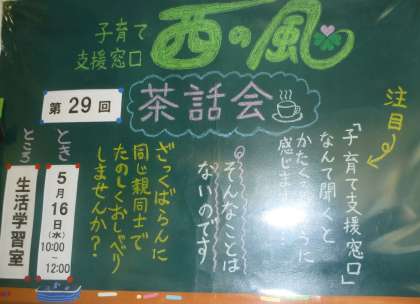 子育て
支援窓口
西の風
第29回
茶話会
注目
「子育て支援窓口」
なんて聞くと
かたく
感じます
そんなことは
ないのです
ざっくばらんに
同じ親同士で
たのしくおしゃべり
しませんか?
とき
5月16日(水)
10:00
~
12:00
ところ
生活学習室